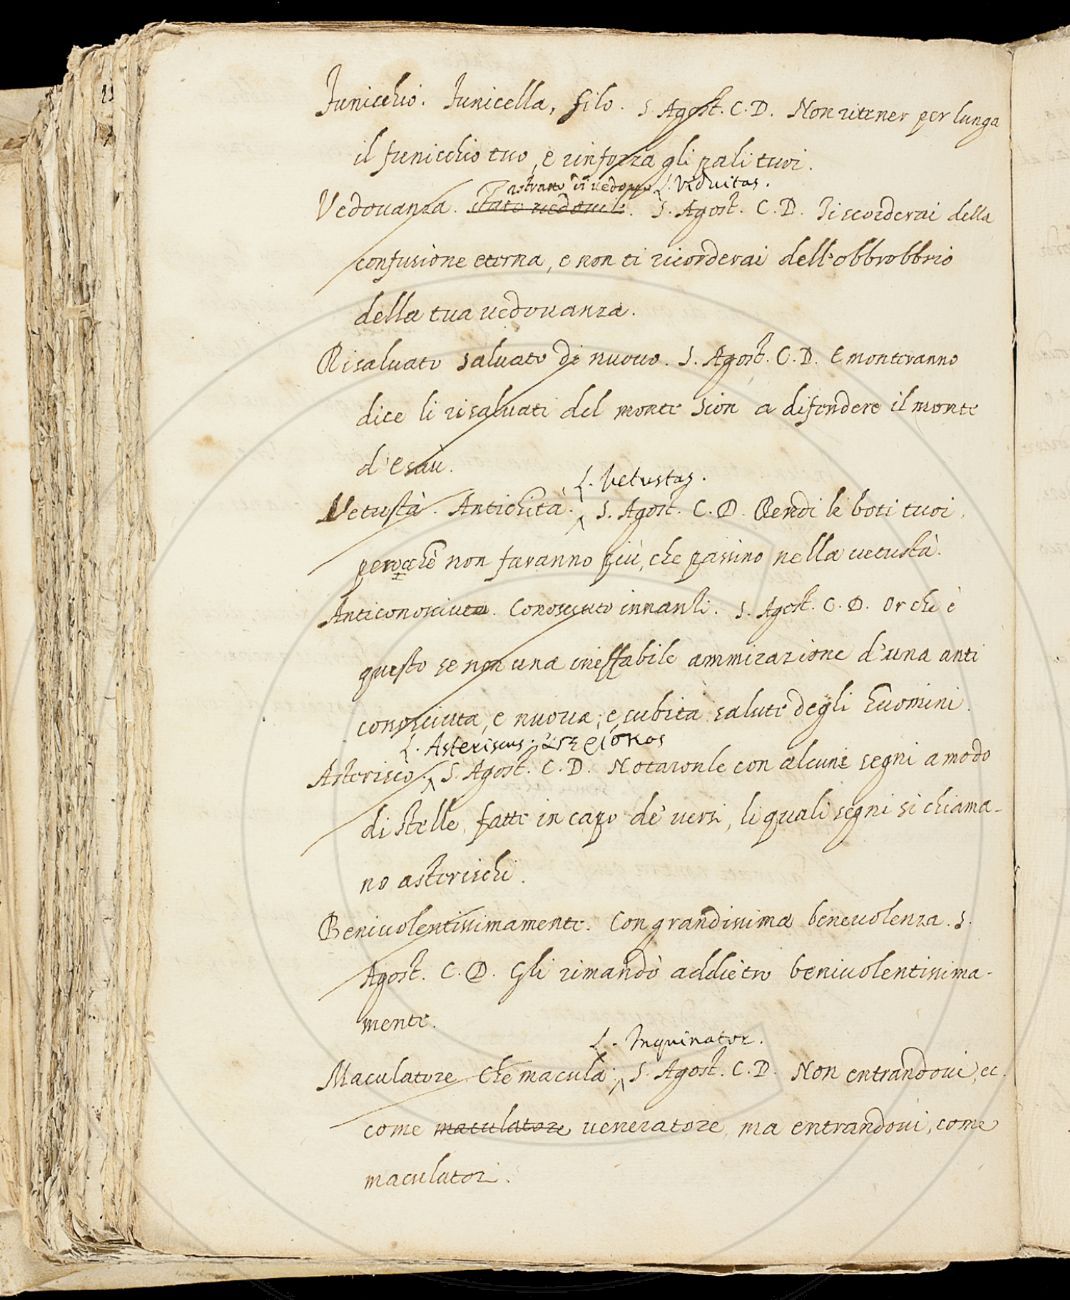 Funicchio. Funicella, filo. S. Agost. C. D. Non ritener per lunga
il funicchio tuo, e rinforza gli pali tuoi.
Astratto di vedovo L. Viduitas.
Vedovanza. Stato vedovile. S. Agost. C. D. Ti scorderai della
confusione eterna, e non ti ricorderai dell'obbrobbrio
della tua vedovanza.
Risalvato salvato di nuovo. S. Agost. C. D. E monteranno
dice li risalvati del monte Sion a difendere il monte
d'Esaù.
L. Vetustas.
Vetustà. Antichità. S. Agost. C. D. Rendi le boti tuoi,
perocchè non faranno più, che passino nella vetustà.
Anticonosciuta. Conosciuto innanti. S. Agost. C. D. Or che è
questo se non una ineffabile ammirazione d'una anti
conosciuta, e nuova, e subita salute degli huomini.
L. Asteriscus, ἀστερίσκος
Asterisco. S. Agost. C. D. Notaronle con alcuni segni a modo
di stelle, fatte in capo de' versi, li quali segni si chiama-
no asterischi.
Benivolentissimamente. Con grandissima benevolenza. S.
Agost. C. D. Gli rimandò addietro benivolentissima-
mente.
L. Inquinator.
Maculatore che macula. S. Agost. C. D. Non entrandovi, ec.
come maculatore veneratore, ma entrandovi, come
maculatori.